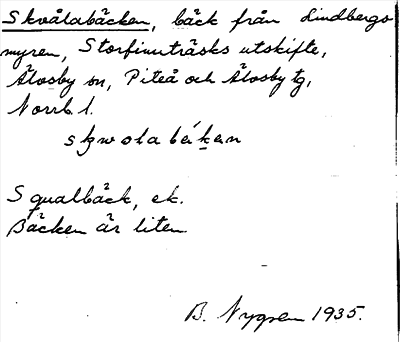 Skvålabäcken, bäck från Lindbergs-
myren, Storfinnträsks utskifte,
Älvsby sn, Piteå och Älvsby tg,
Norrb. l.
Squalbäck, ek.
Bäcken är liten
B. Nygren 1935.